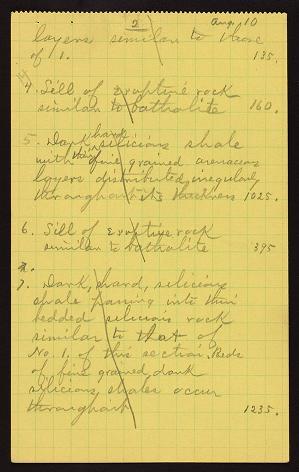 2 Aug. 10
layers similar to those
of 1. 135.
4. Sill of eruptive rock
similar to batholite 160.
5. Dark, hard silicious shale
with thin fine grained arenaceous
layers distributed irregularly
throughout its thickness 1025.
6. Sill of eruptive rock
similar to batholite 395
7. Dark, hard, silicious
shale passing into thin
bedded silicious rock
similar to that of
No. 1. of this section. Beds
of fine grained, dark
silicious, shales occur
throughout 1235.